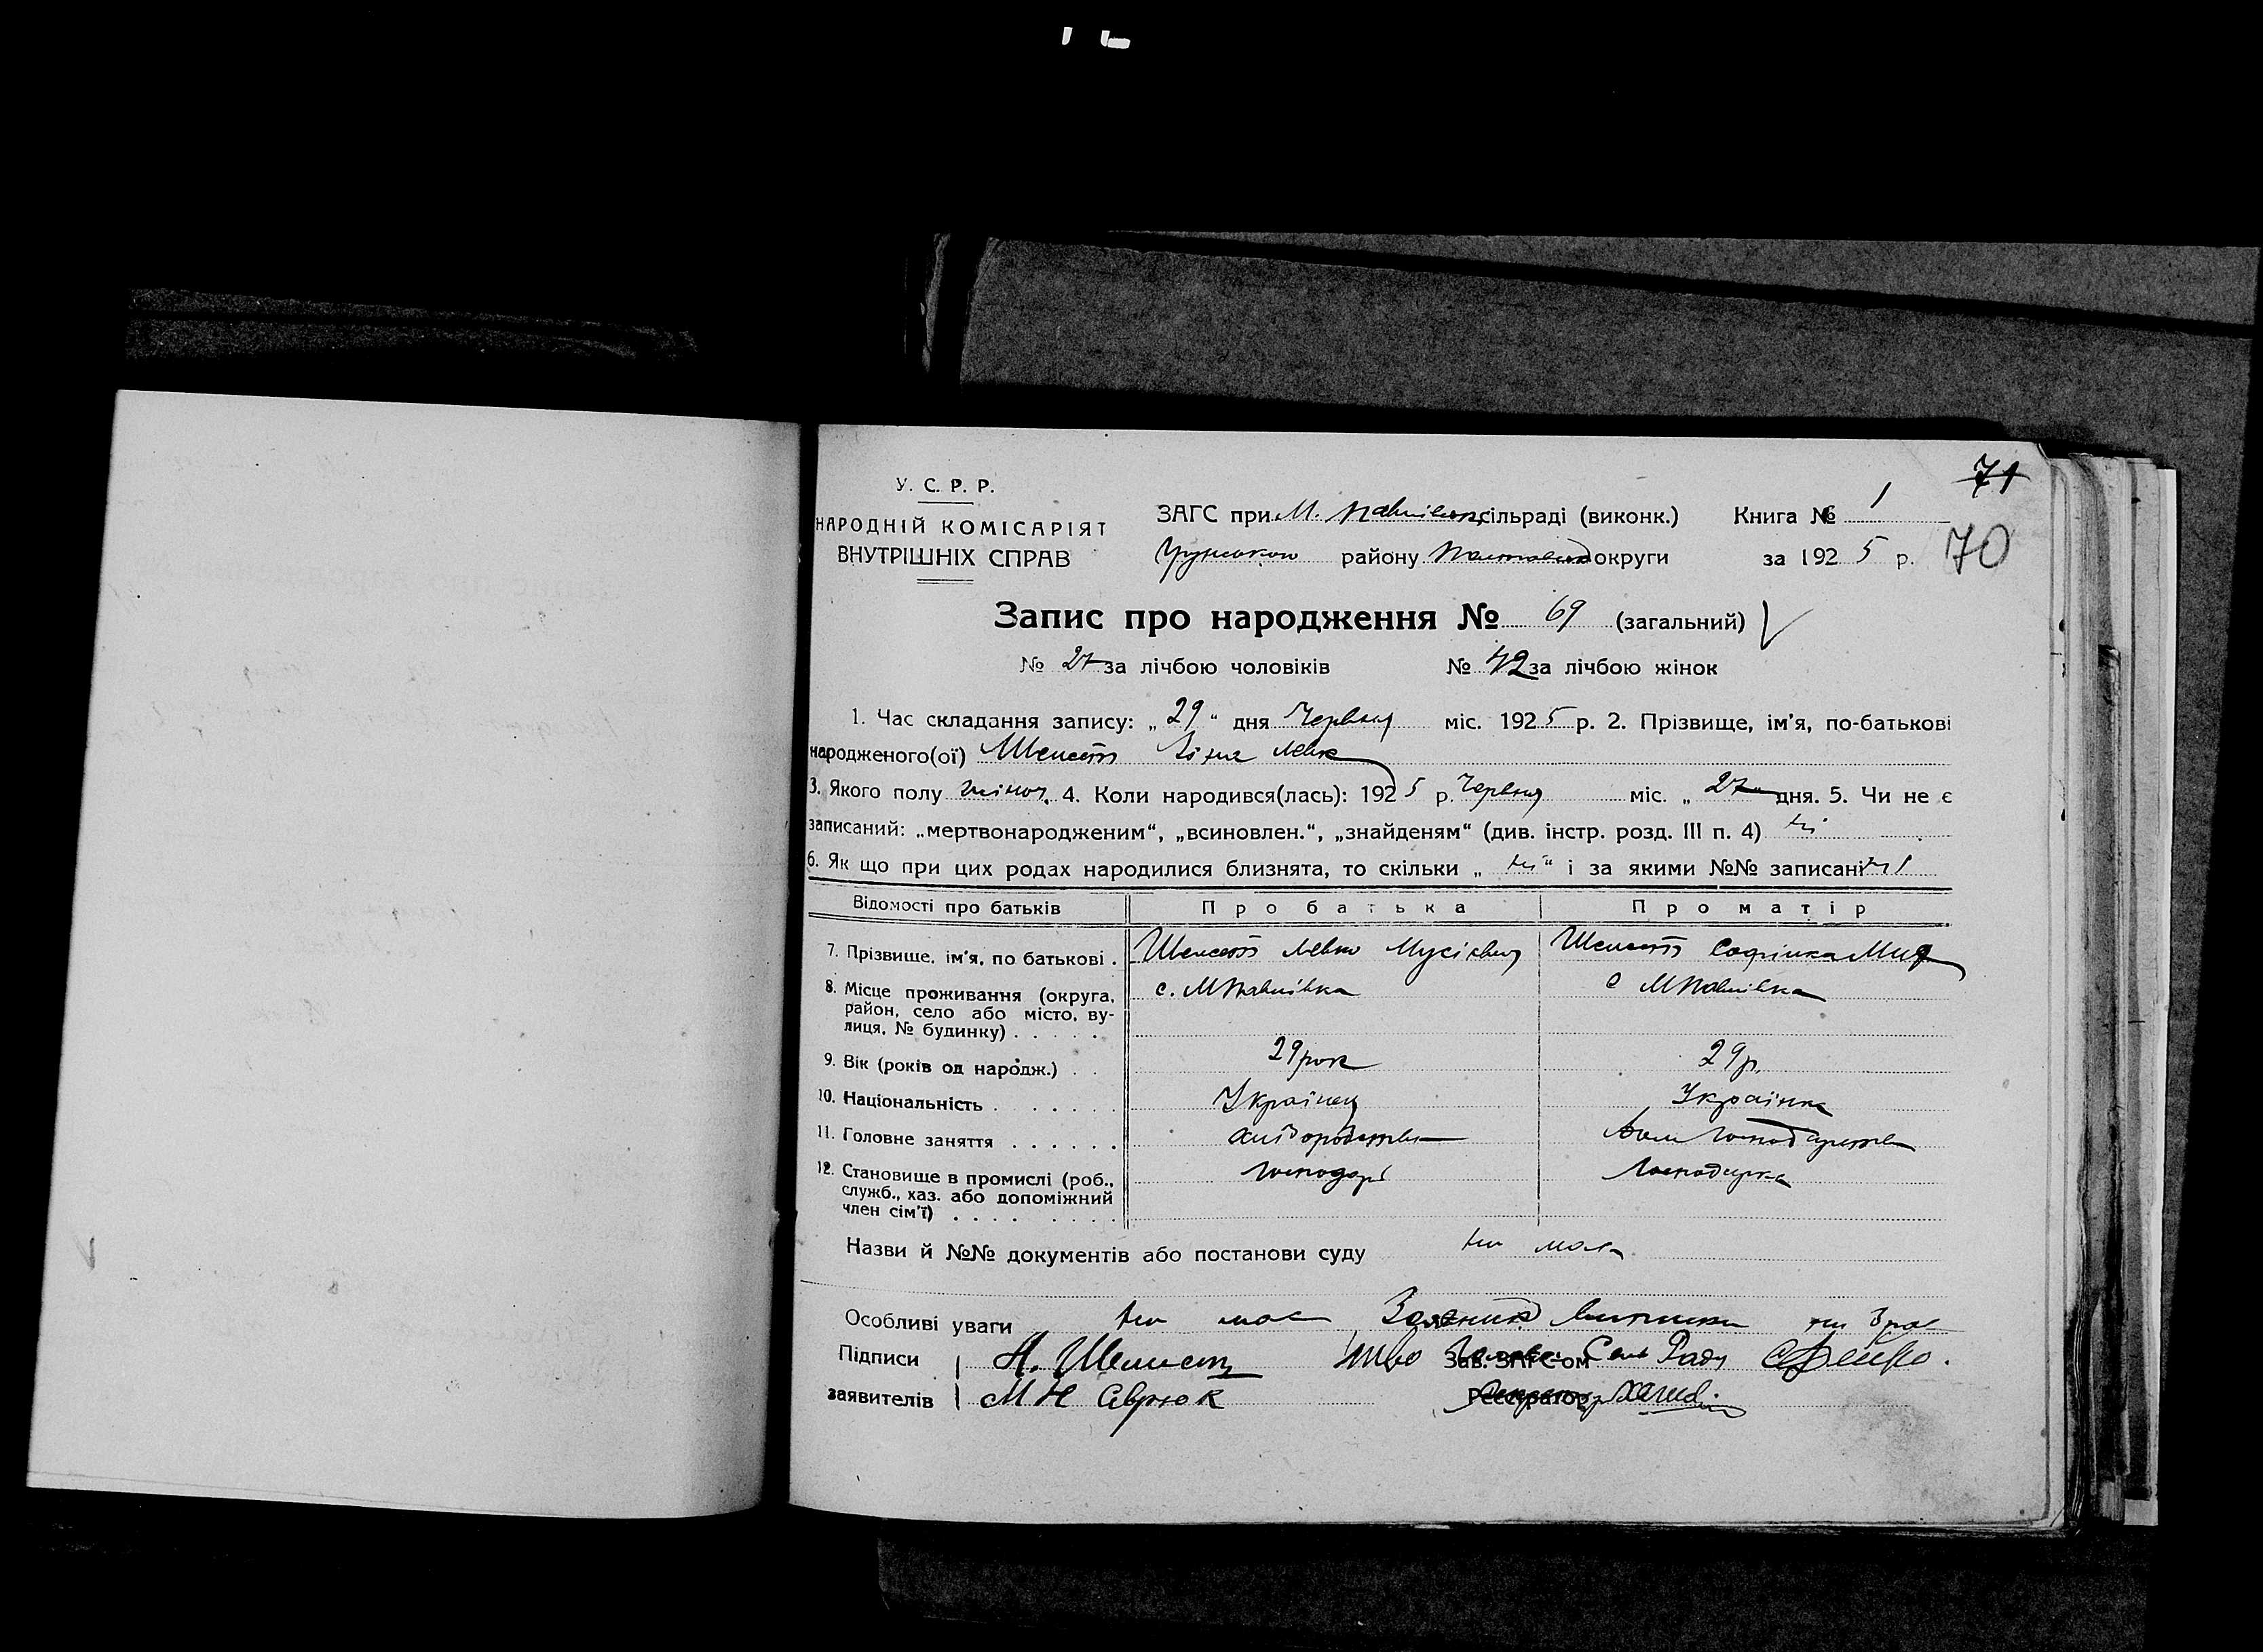 71
У. С. Р. Р.
НАРОДНІЙ КОМІСАРІЯТ
ВНУТРІШНІХ СПРАВ
ЗАГС при М. Павлівськ сільраді (виконк.) Книга № 1
Грунською району Полтавськ округи за 1925 р. 70
Запис про народження № 69 (загальний)
№ 27 за лічбою чоловіків № 42 за лічбою жінок
1. Час складання запису: „ 29 “ дня Червня міс. 1925 р. 2. Прізвище, ім'я, по-батькові
народженого(ої) Шемет
3. Якого полу жіноч. 4. Коли народився(лась): 1925 р. Червня міс. „ 27 “ дня. 5. Чи не є
записаний: „мертвонародженим“, „всиновлен.“, „знайденям“ (див. інстр. розд. III п. 4) ні
6. Як що при цих родах народилися близнята, то скільки „ ні “ і за якими №№ записані ні
Відомості про батьків Про батька Про матір
7. Прізвище, ім'я, по батькові . Шемет Левко Мусієвич Шемет Софійка
8. Місце проживання (округа, с. М Павлівка с М Павлівка
район, село або місто, ву-
лиця, № будинку) . . . . .
9. Вік (років од народж.) . . 29 рок 29 р.
10. Національність . . . . . . Українец Українка
11. Головне заняття . . . . . . Хліборобство
12. Становище в промислі (роб., господарь Господарка
служб., хаз. або допоміжний
член сім'ї) . . . . . . . .
Назви й №№ документів або постанови суду не має
Особливі уваги не має
Підписи Зав. ЗАГС-ом Сель Ради
заявителів М Н Реєстратор